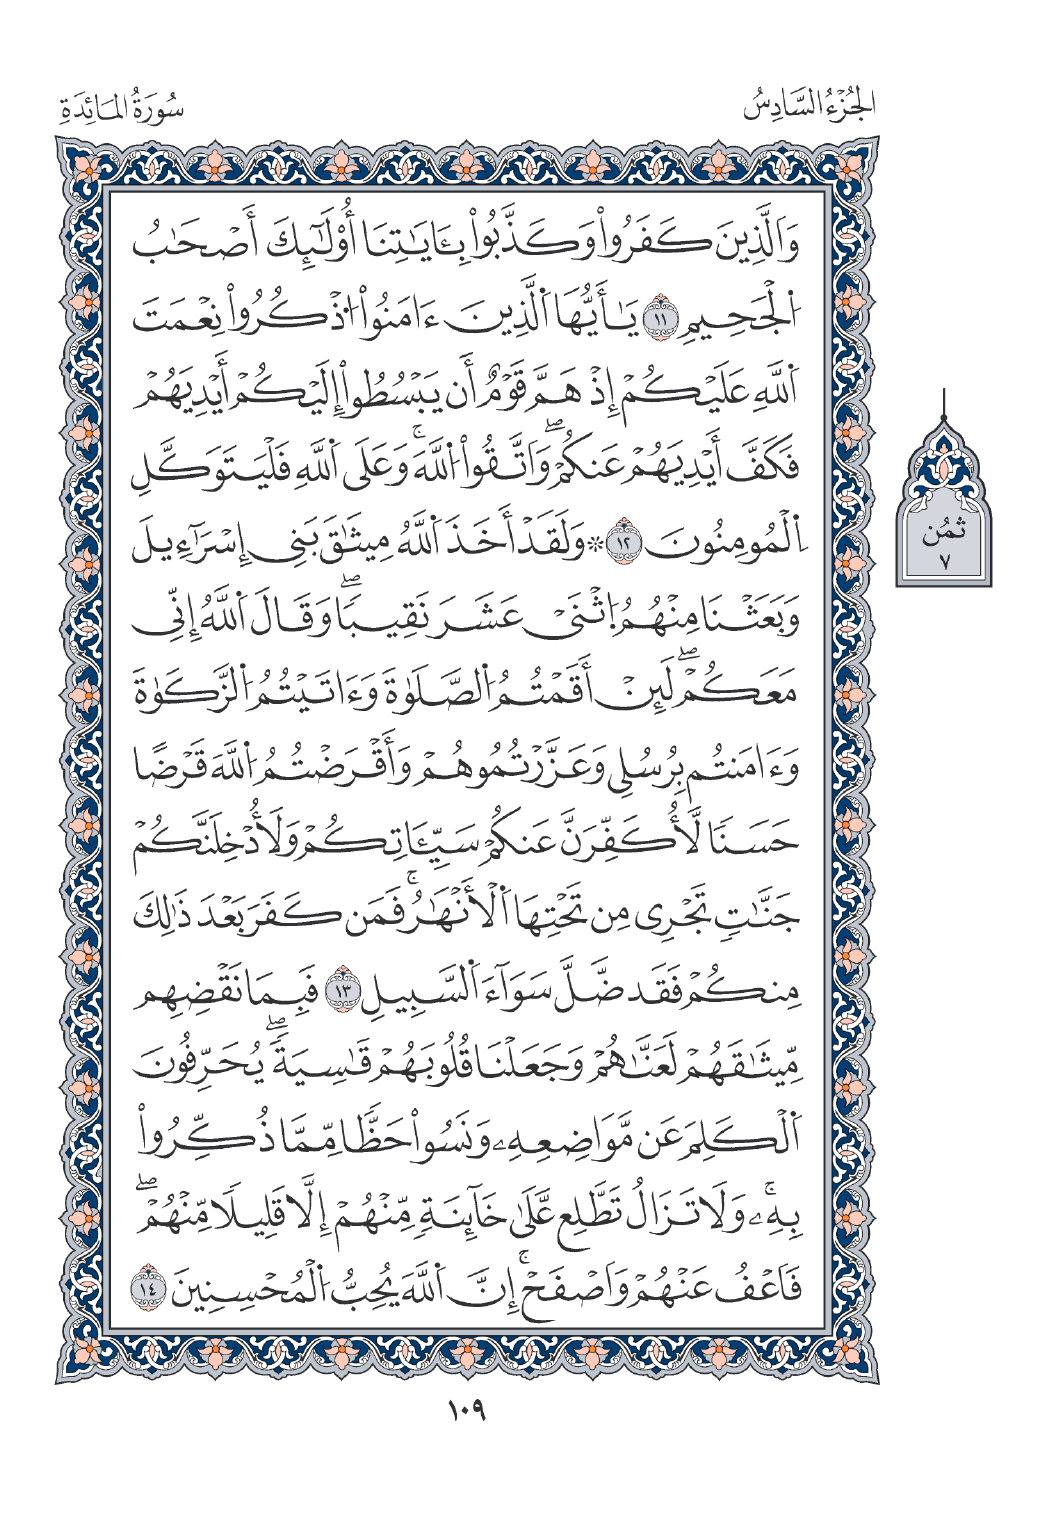 الجُزْءُ السَّادِسُ
سُورَةُ المَائِدَةِ
وَالَّذِينَ كَفَرُواْ وَكَذَّبُواْ بِـَٔايَٰتِنَا أُوْلَٰٓئِكَ أَصْحَٰبُ
اُ۬لْجَحِيمِ ١١ يَٰأَيُّهَا اَ۬لَّذِينَ ءَامَنُواْ اُ۬ذْكُرُواْ نِعْمَتَ
اَ۬للَّهِ عَلَيْكُمْ إِذْ هَمَّ قَوْمٌ أَن يَبْسُطُواْ إِلَيْكُمْ أَيْدِيَهُمْ
فَكَفَّ أَيْدِيَهُمْ عَنكُمْۖ وَاتَّقُواْ اُ۬للَّهَۚ وَعَلَى اَ۬للَّهِ فَلْيَتَوَكَّلِ
اِ۬لْمُومِنُونَ ١٢ ۞وَلَقَدْ أَخَذَ اَ۬للَّهُ مِيثَٰقَ بَنِي إِسْرَآءِيلَ
وَبَعَثْنَا مِنْهُمُ اُ۪ثْنَيْ عَشَرَ نَقِيباٗۖ وَقَالَ اَ۬للَّهُ إِنِّي
مَعَكُمْۖ لَئِنْ أَقَمْتُمُ اُ۬لصَّلَوٰةَ وَءَاتَيْتُمُ اُ۬لزَّكَوٰةَ
وَءَامَنتُم بِرُسُلِي وَعَزَّرْتُمُوهُمْ وَأَقْرَضْتُمُ اُ۬للَّهَ قَرْضًا
حَسَنٗا لَّأُكَفِّرَنَّ عَنكُمْ سَيِّـَٔاتِكُمْ وَلَأُدْخِلَنَّكُمْ
جَنَّٰتٖ تَجْرِي مِن تَحْتِهَا اَ۬لْأَنْهَٰرُۚ فَمَن كَفَرَ بَعْدَ ذَٰلِكَ
مِنكُمْ فَقَد ضَّلَّ سَوَآءَ اَ۬لسَّبِيلِ ١٣ فَبِمَا نَقْضِهِم
مِّيثَٰقَهُمْ لَعَنَّٰهُمْ وَجَعَلْنَا قُلُوبَهُمْ قَٰسِيَةٗۖ يُحَرِّفُونَ
اَ۬لْكَلِمَ عَن مَّوَاضِعِهِۦ وَنَسُواْ حَظّٗا مِّمَّا ذُكِّرُواْ
بِهِۦۚ وَلَا تَزَالُ تَطَّلِعُ عَلَىٰ خَآئِنَةٖ مِّنْهُمْ إِلَّا قَلِيلٗا مِّنْهُمْۖ
فَاعْفُ عَنْهُمْ وَاصْفَحْۚ إِنَّ اَ۬للَّهَ يُحِبُّ اُ۬لْمُحْسِنِينَ ١٤
ثُمُن
٧
١٠٩